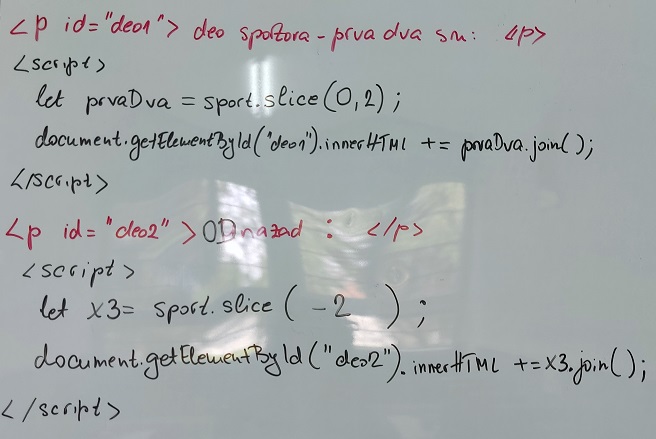 <p id="deo1"> deo sportova - prva dva su: <p>
<script>
let prvaDva = sport.slice(0,2);
document.getElementById("deo1").innerHTML += prvaDva.join();
</script>
<p id="deo2">ODnazad : </p>
<script>
let x3= sport.slice( -2 );
document.getElementById("deo2").innerHTML +=x3.join();
</script>